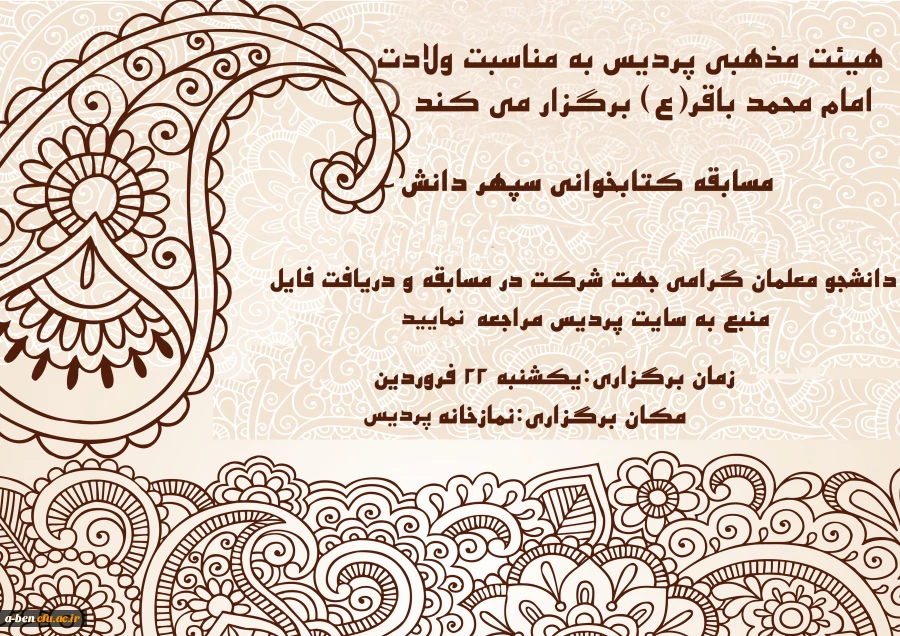 هیئت مذهبی پردیس به مناسبت ولادت
امام محمد باقر(ع) برگزار می کند
مسابقه کتابخوانی سپهر دانش
دانشجو معلمان گرامی جهت شرکت در مسابقه و دریافت فایل
منبع به سایت پردیس مراجعه نمایید
زمان برگزاری:یکشنبه ۲۲ فروردین
مکان برگزاری:نمازخانه پردیس
a-ben.cfu.ac.ir